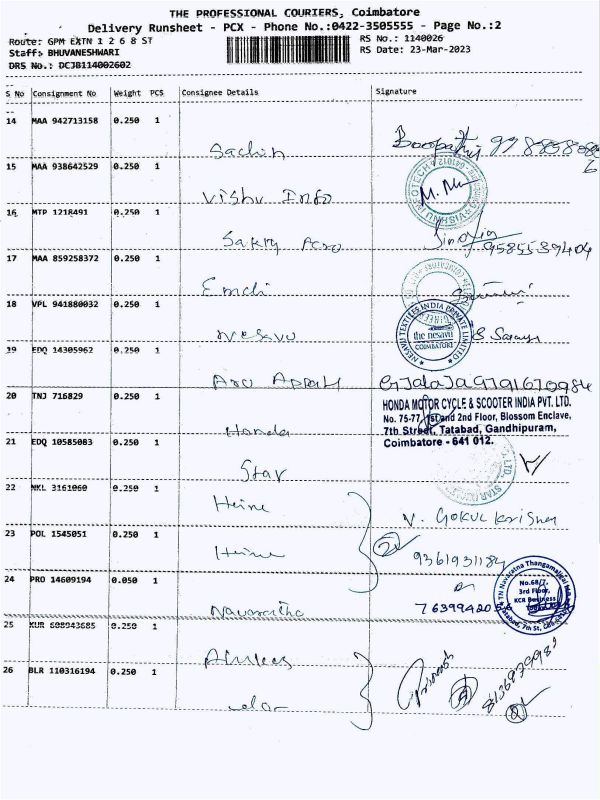 THE PROFESSIONAL COURIERS, Coimbatore
Delivery Runsheet - PCX - Phone No.:0422-3505555 - Page No.:2
Route: GPM EXTN 1 2 6 8 ST
RS No.: 1140026
Staff: BHUVANESHWARI
RS Date: 23-Mar-2023
DRS No.: DCJB114002602
S No Consignment No Weight PCS Consignee Details Signature
14 MAA 942713158 0.250 1
Sachin
15 MAA 938642529 0.250 1
Vishu Info
16 MTP 1218491 0.250 1
Sakry Acro 9585539404
17 MAA 859258372 0.250 1
Emdi
18 VPL 941880032 0.250 1
NESAVU TEXTILES INDIA PRIVATE LIMITED
the nesavu
COIMBATORE
Nesavu
19 EDQ 14305962 0.250 1
9791670984
20 TNJ 716829 0.250 1
HONDA MOTOR CYCLE & SCOOTER INDIA PVT. LTD.
No. 75-77, 1st and 2nd Floor, Blossom Enclave,
7th Street, Tatabad, Gandhipuram,
Coimbatore - 641 012.
Honda
21 EDQ 10585083 0.250 1
Star
22 NKL 3161060 0.250 1
Heine
V. Gokul Krishna
23 POL 1545051 0.250 1
Heine
9361931184
24 PRO 14609194 0.050 1
No.68/7,
3rd Floor,
KCR Business
Navaratna
25 KUR 808943685 0.250 1
26 BLR 110316194 0.250 1